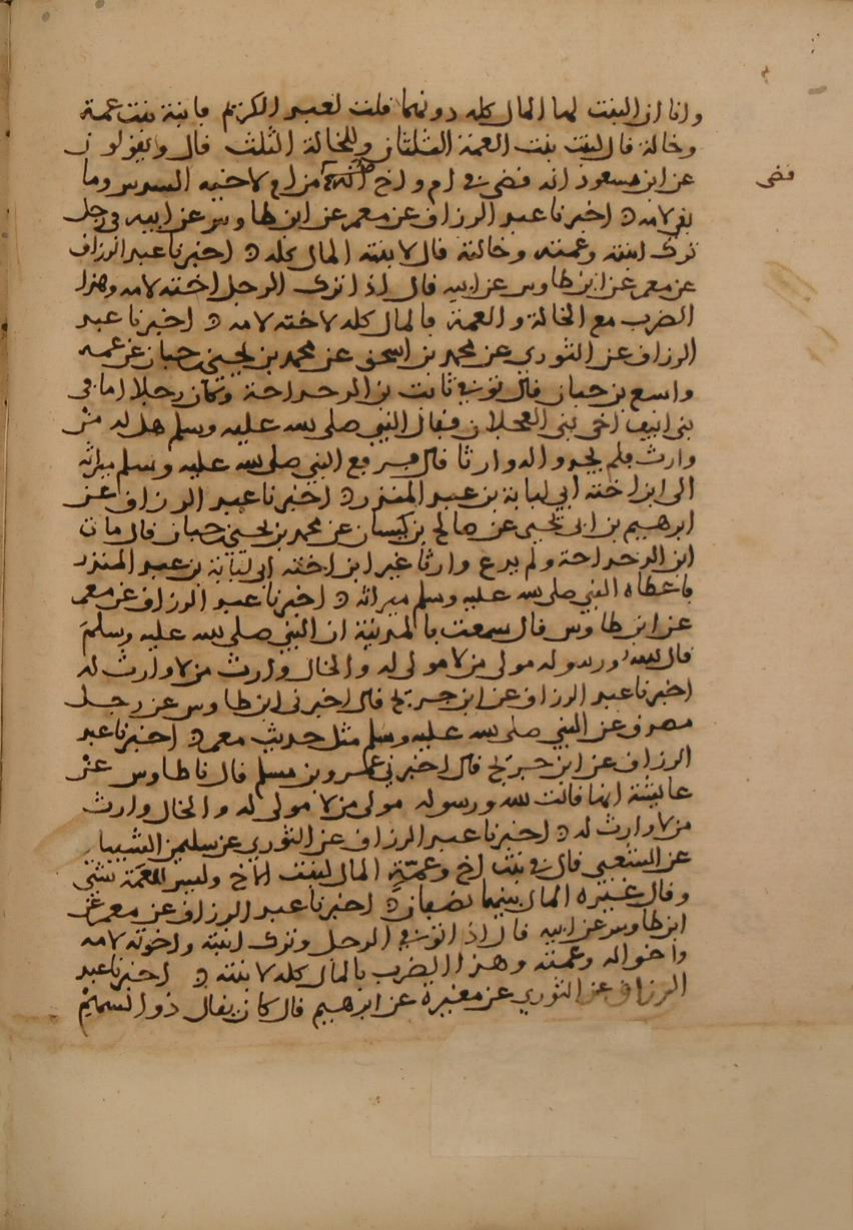 وانا ان البنت لها المال كله دونهما قلت لعبد الكريم فابنة بنت عمة
وخالة قال لبنت بنت العمة الثلثان وللخالة الثلث قال ويقولون
عن ابن مسعود انه قضى في ام واخ لامه من لاخيه السدس وما
قضى
بقي لامه اخبرنا عبد الرزاق عن معمر عن ابن طاوس عن ابيه في رجل
ترك ابنته وعمته وخالته قال لابنته المال كله اخبرنا عبد الرزاق
عن معمر عن ابن طاوس عن ابيه قال اذا ترك الرجل اخته لامه وهذا
الضرب مع الخالة والعمة فالمال كله لاخته لامه اخبرنا عبد
الرزاق عن الثوري عن محمد بن اسحق عن محمد بن يحيى حبان عن عمه
واسع بن حبان قال توفي ثابت بن الدحداحة وكان رجلا اتيا في
بني انيف اخي بني العجلان فقال النبي صلى الله عليه وسلم هل له من
وارث فلم يجدوا له وارثا قال فدفع النبي صلى الله عليه وسلم ميراثه
الى ابن اخته ابي لبابة بن عبد المنذر اخبرنا عبد الرزاق عن
ابرهيم بن ابي يحيى عن صالح بن كيسان عن محمد بن يحيى حبان قال مات
ابن الدحداحة ولم يدع وارثا غير ابن اخته ابي لبابة بن عبد المنذر
فاعطاه النبي صلى الله عليه وسلم ميراثه اخبرنا عبد الرزاق عن معمر
عن ابن طاوس قال سمعت بالمدينة ان النبي صلى الله عليه وسلم
قال الله ورسوله مولى من لا مولى له والخال وارث من لا وارث له
اخبرنا عبد الرزاق عن ابن جريج قال اخبرني ابن طاوس عن رجل
مصدق عن النبي صلى الله عليه وسلم مثل حديث معمر اخبرنا عبد
الرزاق عن ابن جريج قال اخبرني عمرو بن مسلم قال نا طاوس عن
عايشة انها قالت الله ورسوله مولى من لا مولى له والخال وارث
من لا وارث له اخبرنا عبد الرزاق عن الثوري عن سليمن الشيباني
عن الشعبي قال في بنت اخ وعمة المال لبنت الاخ وليس للعمة شي
وقال غيره المال بينهما نصفان اخبرنا عبد الرزاق عن معمر عن
ابن طاوس عن ابيه قال اذا توفي الرجل وترك ابنته واخوته لامه
واخواله وعمته وهذا الضرب فالمال كله لابنته اخبرنا عبد
الرزاق عن الثوري عن مغيرة عن ابرهيم قال كان يقال ذو السهم